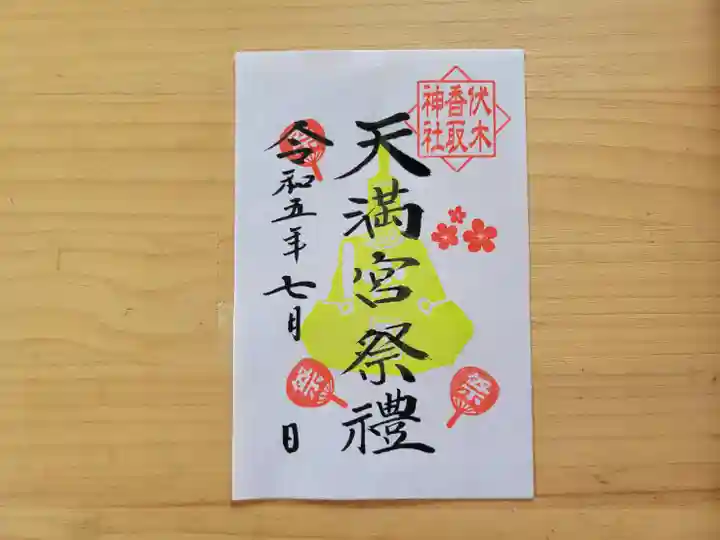 伏木
香取
神社
天満宮祭禮
令和五年七月 日
祭
祭
祭